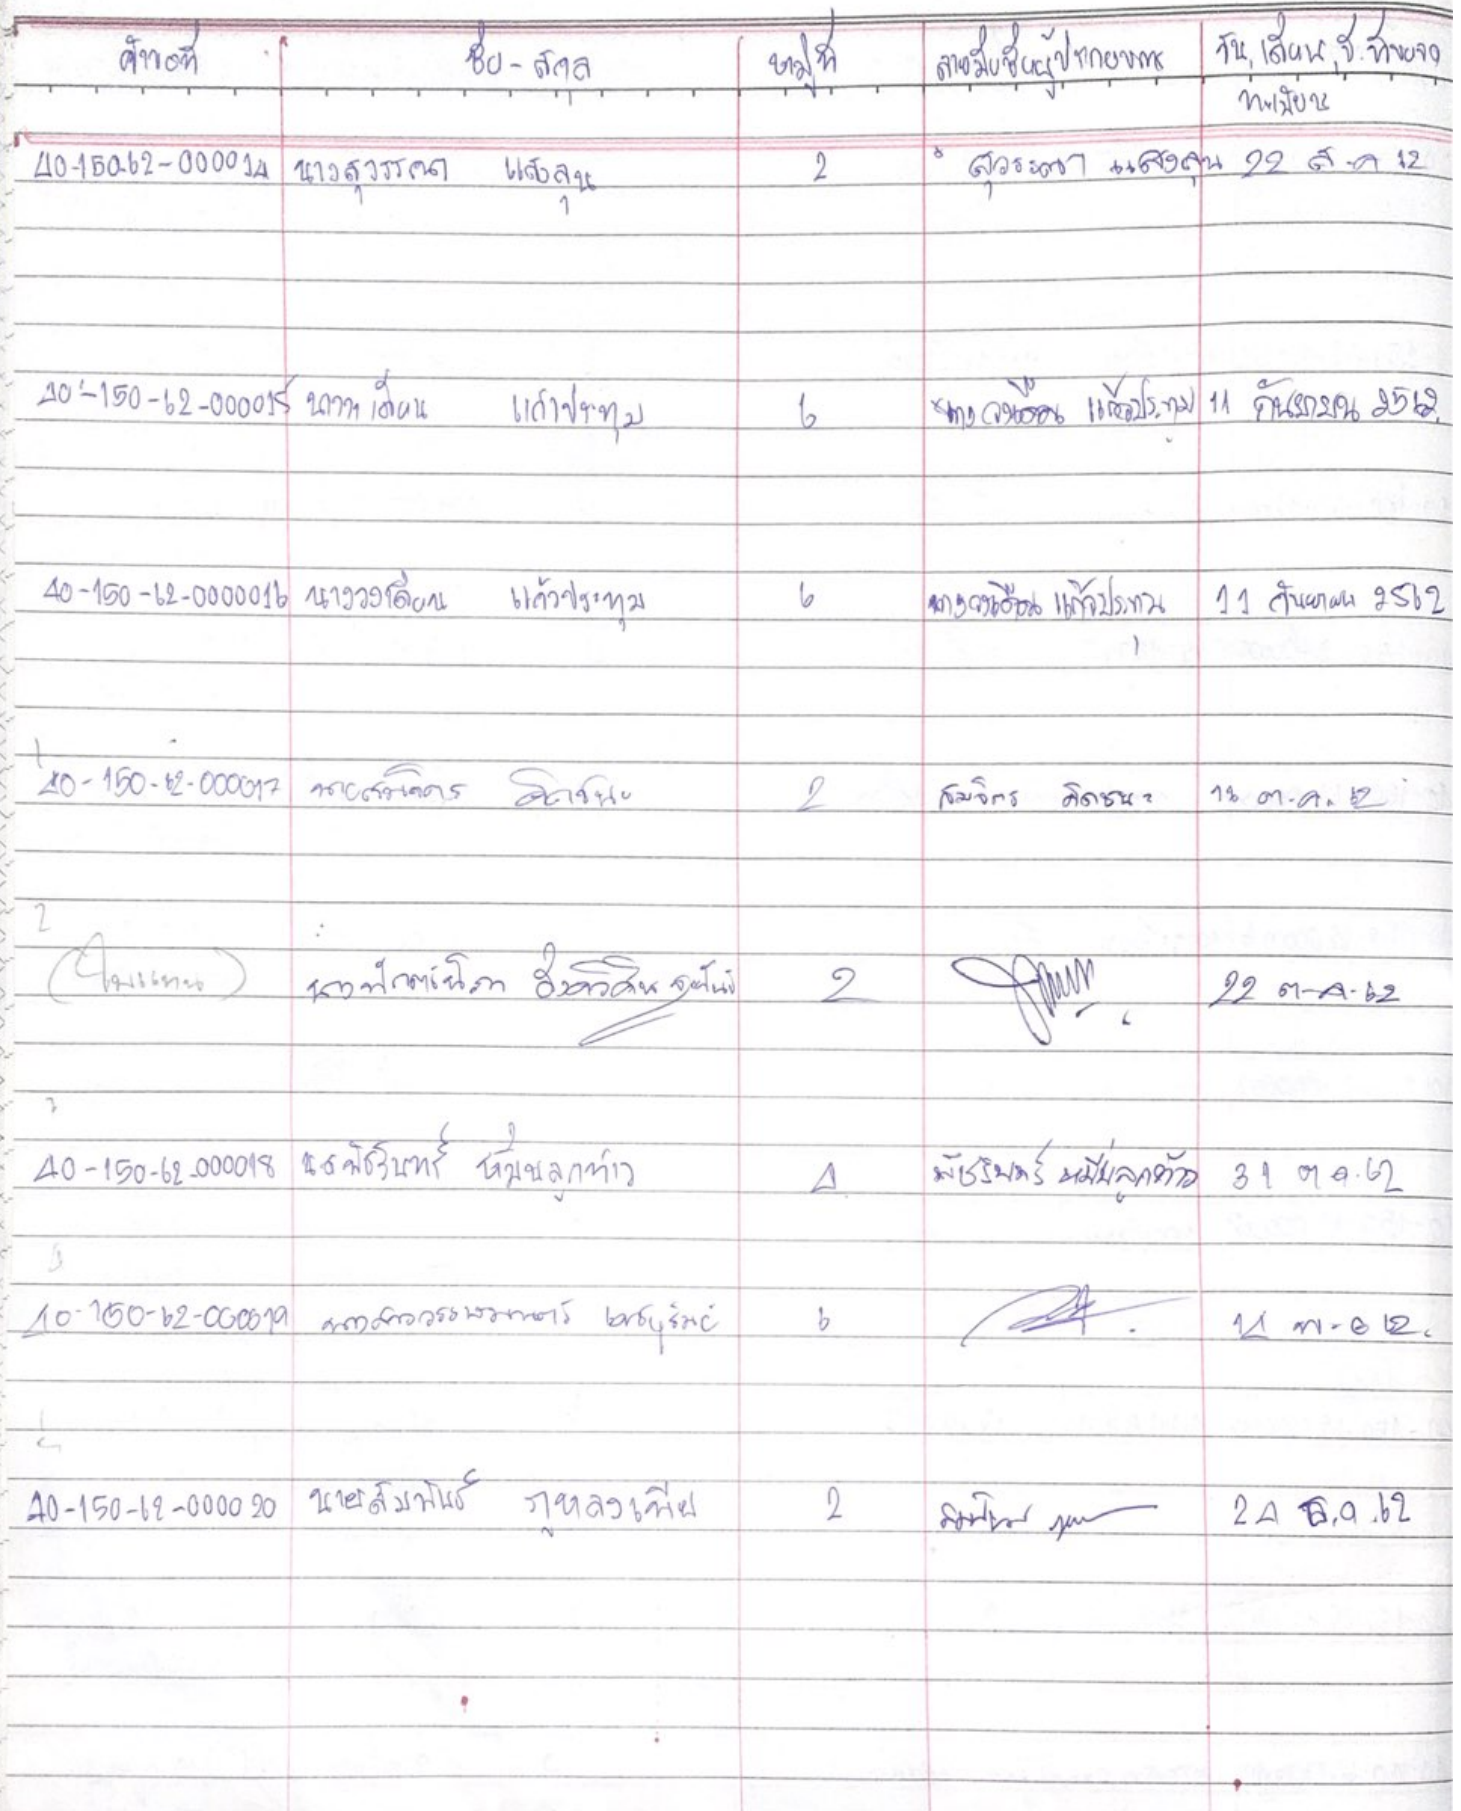 คำขอที่ ชื่อ-สกุล หมู่ที่ ลายมือชื่อผู้ประกอบการ วัน, เดือน, ปี. ที่ขอจด
ทะเบียน
40-150-62-000014 นางสุวรรณา แสงลุน 2 สุวรรณา แสงลุน 22 ส.ค 62
40-150-62-000015 แก้วประทุม 6 นางวงเดือน แก้วประทุม 11 กันยายน 2562
40-150-62-0000016 นางวงเดือน แก้วประทุม 6 นางวงเดือน แก้วประทุม 11 กันยายน 2562
40-150-62-000017 นายสมจิตร คิดชนะ 2 สมจิตร คิดชนะ ต.ค. 62
2
(ใบแทน) 2 22 ต.ค.62
3
40-150-62-000018 นส พัชรินทร์ หมื่นลูกท้าว 4 พัชรินทร์ หมื่นลูกท้าว 31 ต.ค.62
40-150-62-000019 6 14 พ.ย 62.
40-150-62-000020 นายสัมพันธ์ ภูหลงเพีย 2 สัมพันธ์ 24 ธ.ค.62